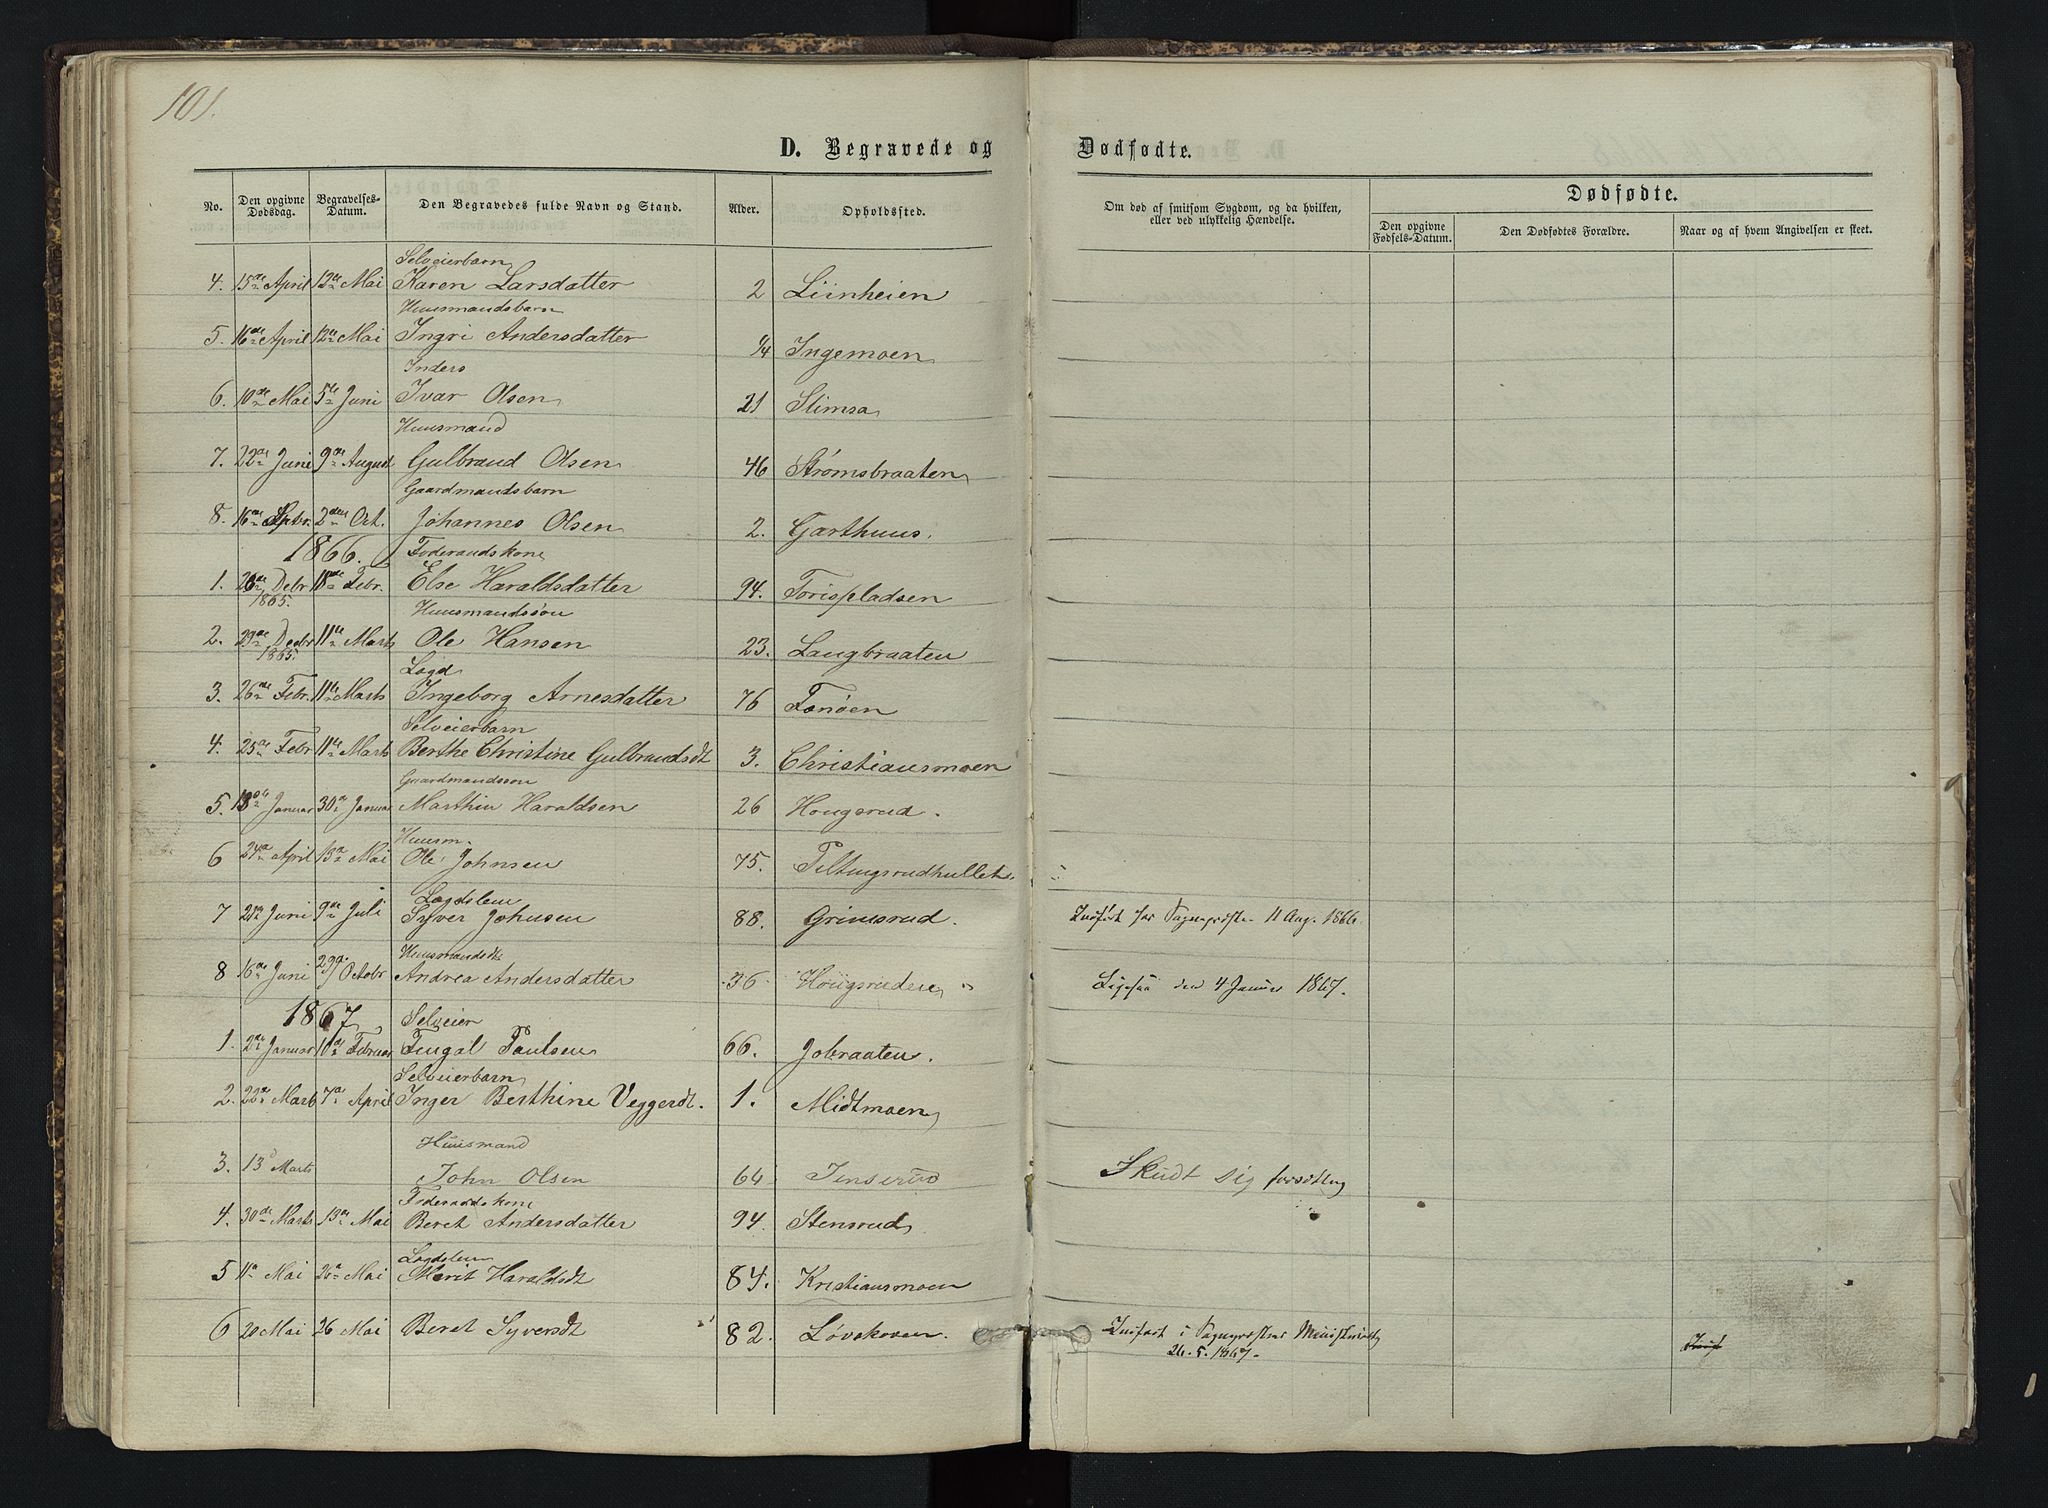 101.
D. Begravede og Dødfødte.
No. Den opgivne Dødsdag. Begravelses-Datum. Den Begravedes fulde Navn og Stand. Alder. Opholdssted. Om død af smitsom Sygdom, og da hvilken, eller ved ulykkelig Hændelse. Dødfødte. Den opgivne Fødsels-Datum. Den Dødfødtes Forældre. Naar og af hvem Angivelsen er skeet.
Selveierbarn
4. 15de April 12te Mai Karen Larsdatter 2 Liinheien
Huusmandsbarn
5. 16de April 12te Mai Ingri Andersdatter 1/4 Ingemoen
Inders
6. 10de Mai 5te Juni Ivar Olsen 21 Slimsa
Huusmand
7. 22de Juni 9de August Gulbrand Olsen 46 Strømsbraaten
Gaardmandsbarn
8. 16de Septbr. 2den Oct. Johannes Olsen 2. Garthuus.
1866. Foderaadskone
1. 26de Debr 18de Febr. Else Haraldsdatter 94. Torispladsen
1865. Huusmandssøn
2. 29de Decbr 11te Marts Ole Hansen 23. Langbraaten
1865. Lægd
3. 26de Febr. 11te Marts Ingeborg Arnesdatter 76 Fønøen
Selveierbarn
4. 25de Febr 11te Marts Berthe Christine Gulbrandsdt 3. Christiansmoen
Gaardmandssøn
5. 18de Januar 30te Januar Marthin Haraldsen 26 Hougsrud.
Huusm.
6 24de April 13de Mai Ole Johnsen 75. Piltingsrudhullet.
Lægdslem
7 Juni 9de Juli Syver Johnsen 88. Grimsrud. Indført hos Sogneprsten 11 Aug. 1866.
Huusmandsdt
8 16de Juni 29de Octobr Andrea Andersdatter 36 Hougsruden Ligesaa den 4 Januar 1867.
1867 Selveier
1. 2de Januar 10de Februar Fingal Paulsen 66. Jobraaten.
Selveierbarn
2. 22de Marts 7de April Inger Berthine Veggerdt. 1. Midtmoen
Huusmand
3. 13d Marts John Olsen 64 Jenserud Skudt sig forsætlig
Foderaadskone
4. 30de Marts 19de Mai Beret Andersdatter 94. Stensrud
Lægdslem
5 11te Mai 26de Mai Marit Haraldsdt 84. Kristiansmoen
6 20 Mai 26 Mai Beret Syversdt 82. Løvskoven. Indført i Sogneprstens Ministerialbg
26.5.1867.